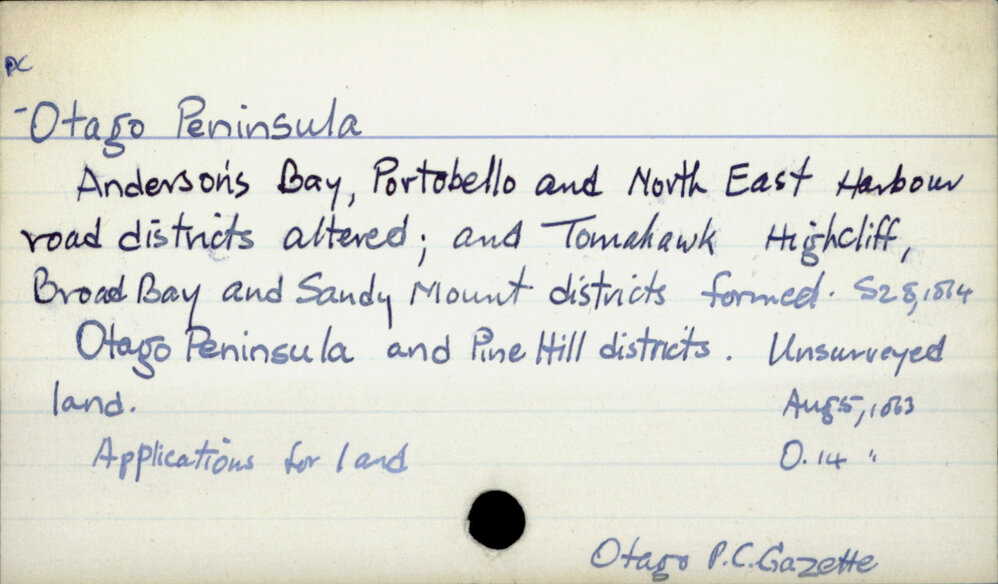 PC
-Otago Peninsula
Anderson's Bay, Portobello and North East Harbour
road districts altered; and Tomahawk Highcliff,
Broad Bay and Sandy Mount districts formed. S28,1864
Otago Peninsula and Pine Hill districts. Unsurveyed
land. Aug5,1863
Applications for land O.14 "
Otago P.C. Gazette